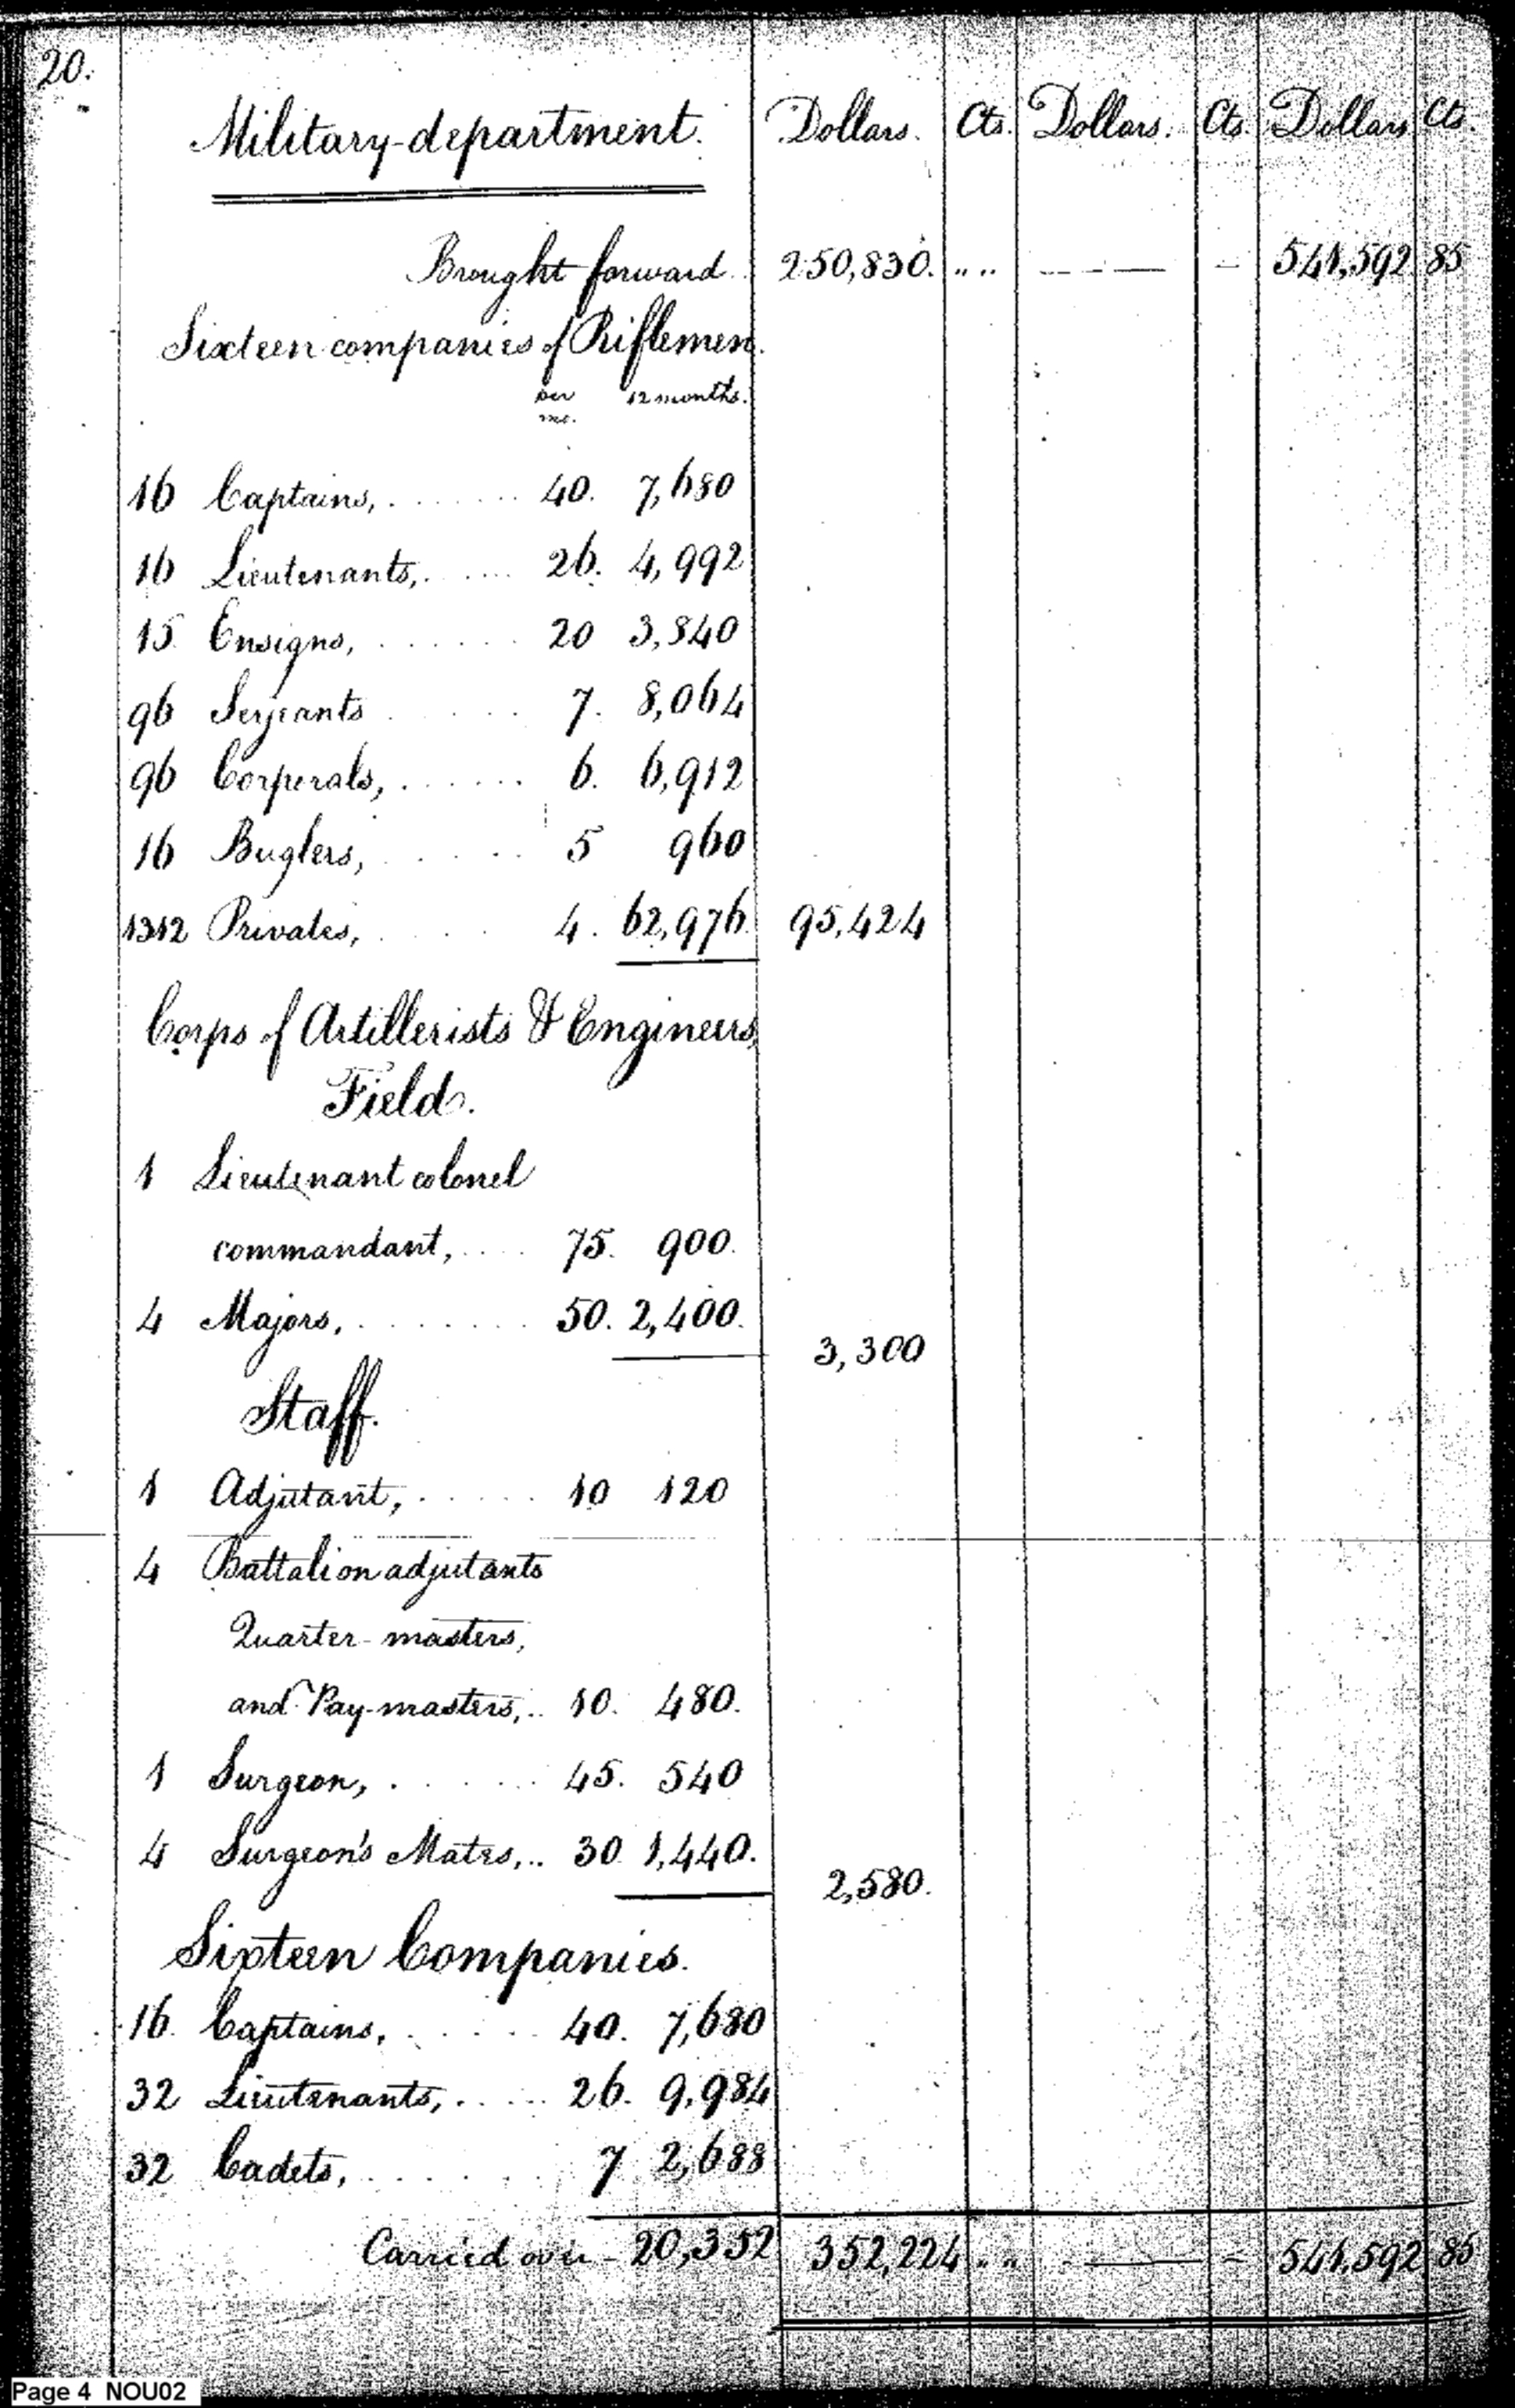 20.
Military-department. Dollars. Cts. Dollars. Cts. Dollars Cts.
Brought forward 250,830. " " — — — — 541,592 85
Sixteen companies of Riflemen.
per 12 months.
mo.
16 Captains, . . . . . . . 40. 7,680
16 Lieutenants, . . . . . 26. 4,992
15 Ensigns, . . . . . . 20 3,840
96 Serjeants . . . . . . 7. 8,064
96 Corporals, . . . . . . 6. 6,912
16 Buglers, . . . . . 5 960
1312 Privates, . . . . 4. 62,976. 95,424
Corps of Artillerists & Engineers,
Field.
1 Lieutenant colonel
commandant, . . . . 75. 900.
4 Majors, . . . . . . . . 50. 2,400.
3,300
Staff.
1 Adjutant, . . . . . . 10 120
4 Battalion adjutants
Quarter-masters,
and Pay-masters, . . 10. 480.
1 Surgeon, . . . . . . 45. 540
4 Surgeon's Mates, . . 30. 1,440.
2,580.
Sixteen Companies.
16. Captains, . . . . . 40. 7,680
32 Lieutenants, . . . . . 26. 9,984
32 Cadets, . . . . . . 7 2,688
Carried over - 20,352 352,224 " " - — — 541,592 85
Page 4 NOU02